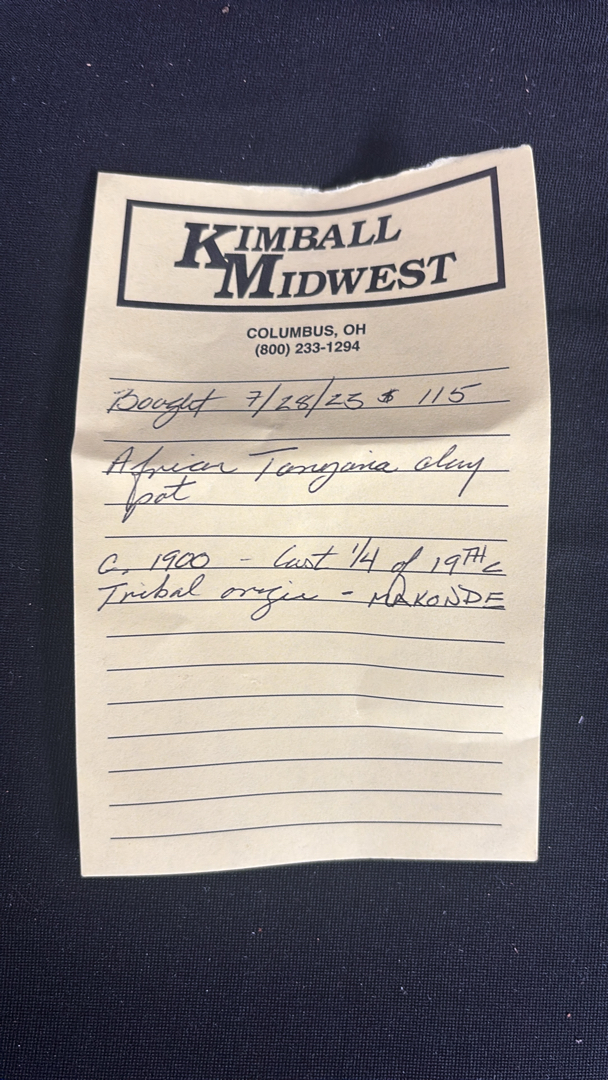 KIMBALL
MIDWEST
COLUMBUS, OH
(800) 233-1294
Bought 7/28/23 $ 115
African Tanzania clay
pot
C. 1900 - Last 1/4 of 19TH C
Tribal origin - MAKONDE